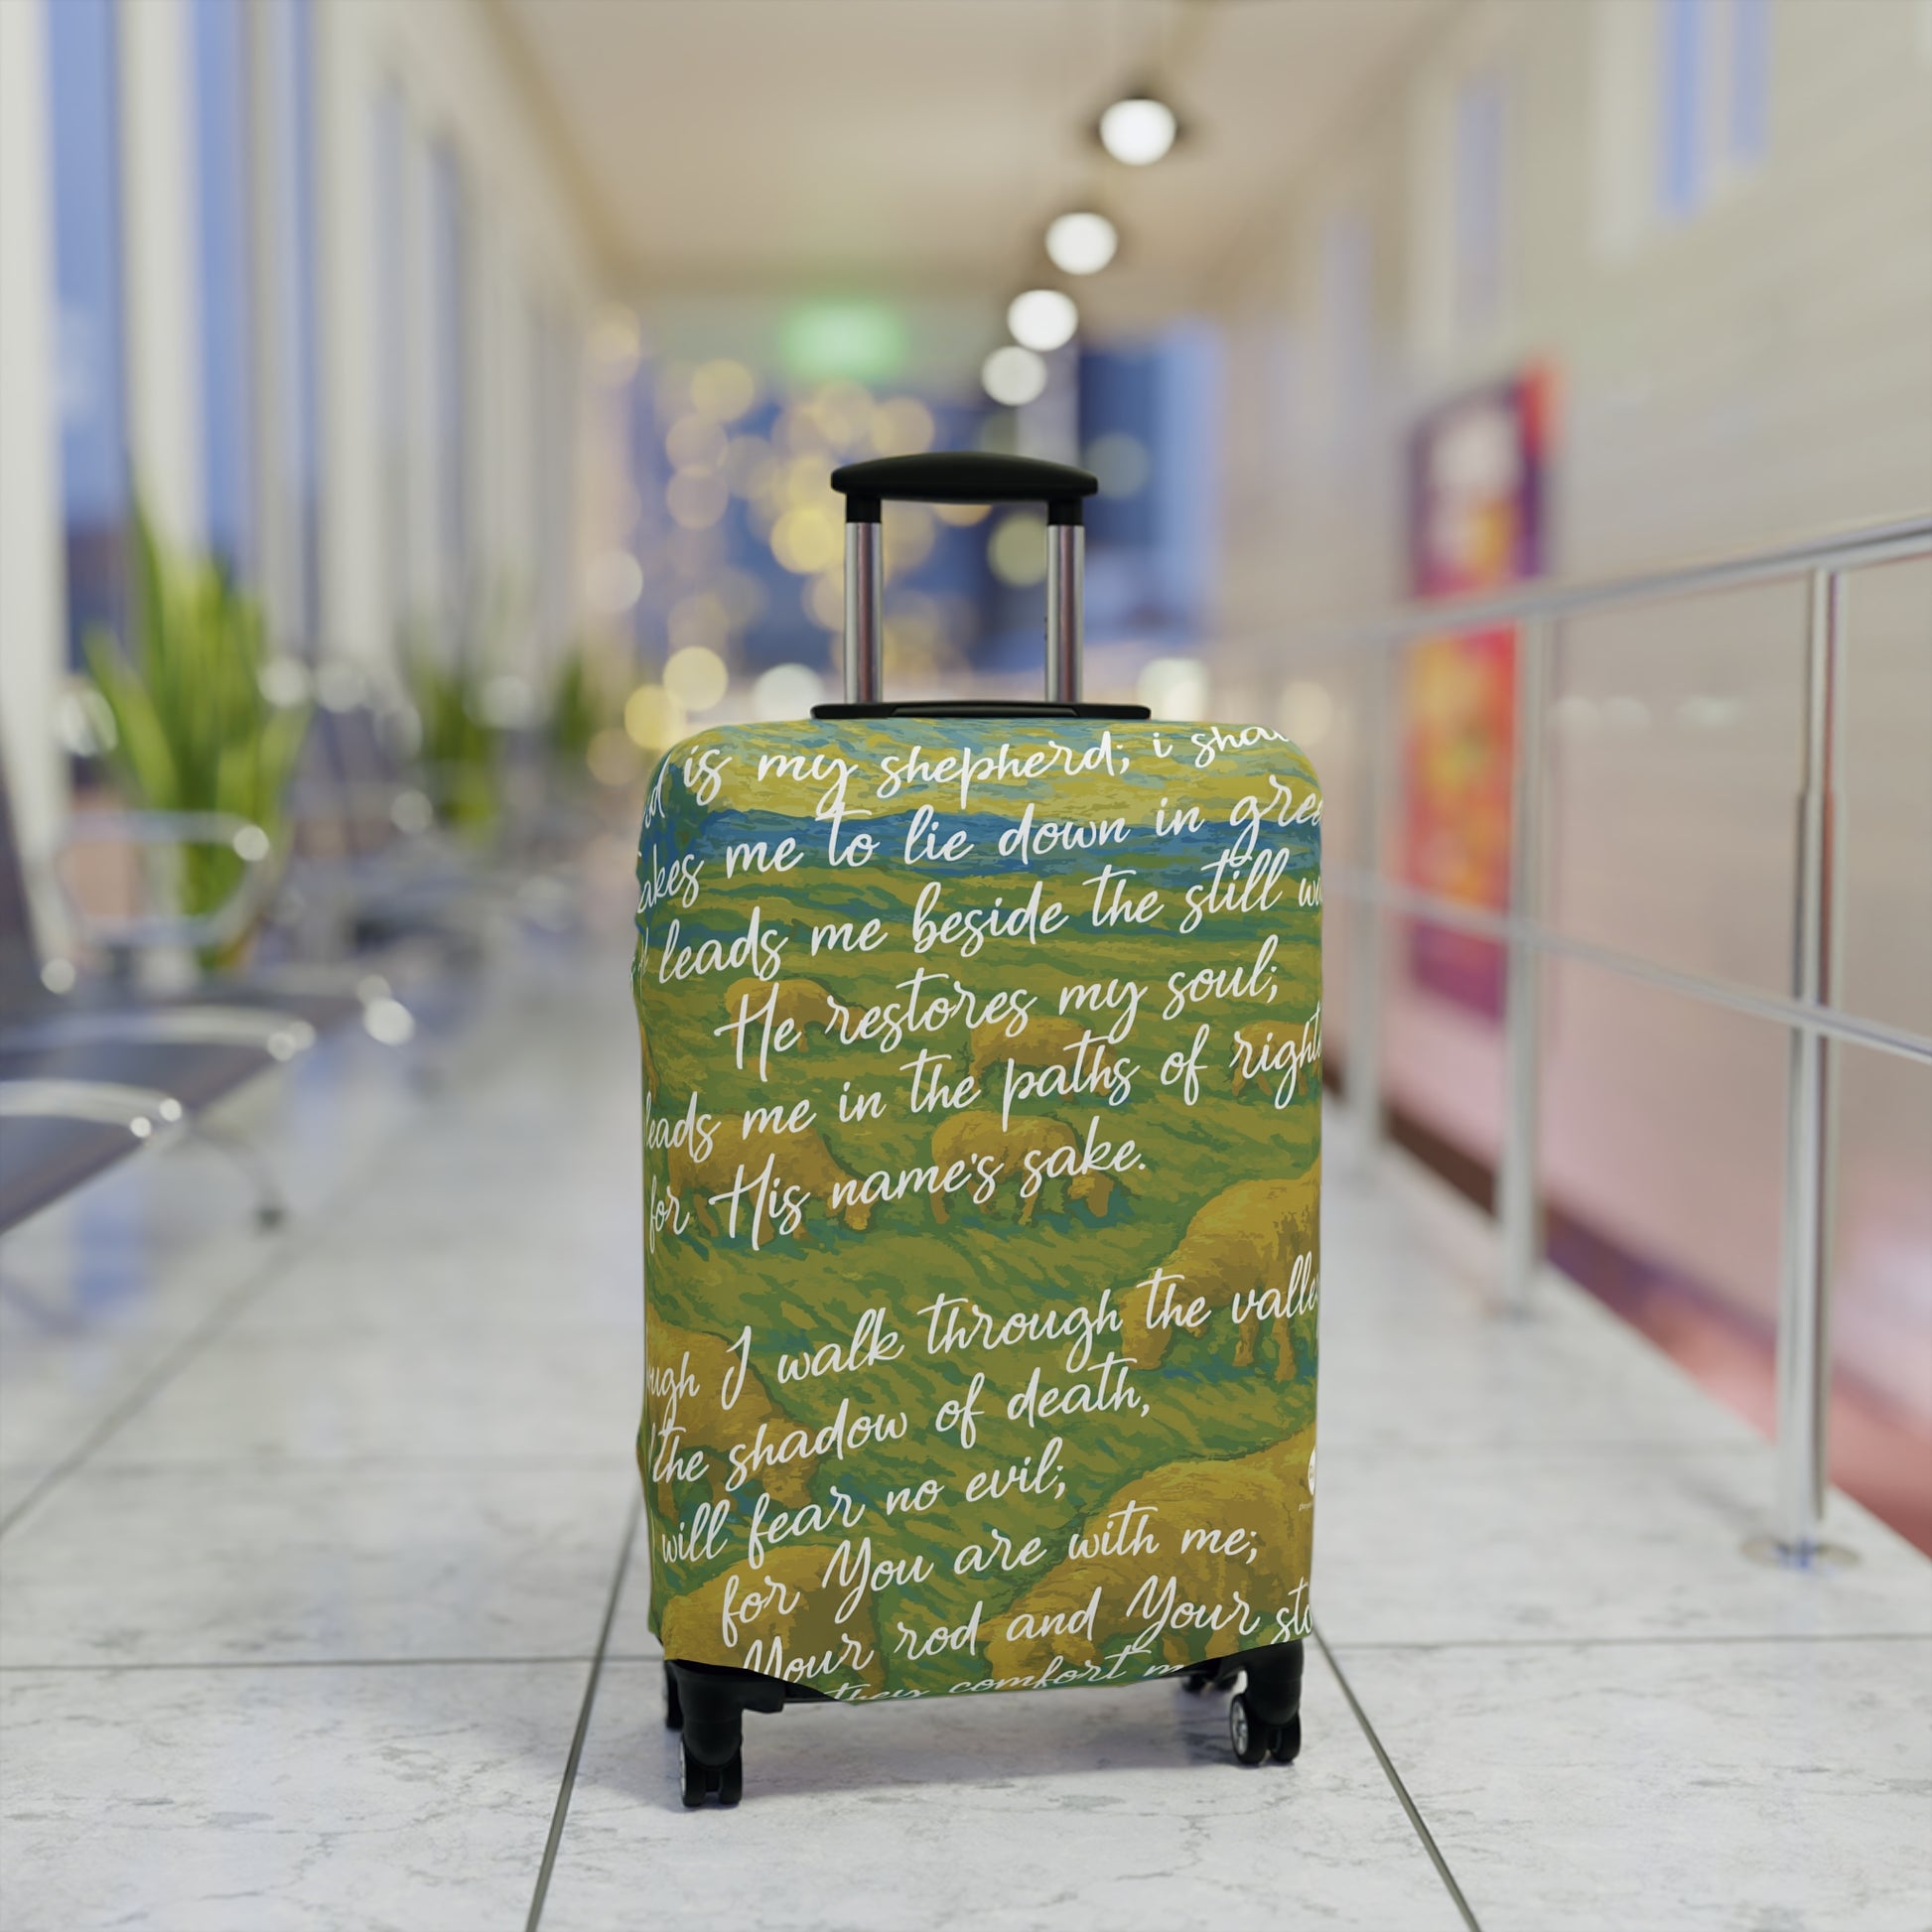 is my shepherd; i
me to lie down in
leads me beside the still
He restores my soul;
leads me in the paths of
for His name's sake.
I walk through the
the shadow of death,
will fear no evil;
for You are with me;
Your rod and Your
they comfort